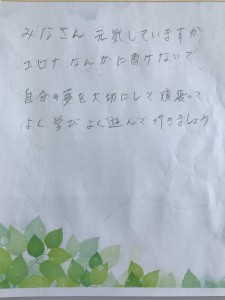 みなさん 元気していますか
コロナ なんかに負けないで
自分の夢を大切にして 頑張って
よく学び よく遊んで 行きましょう